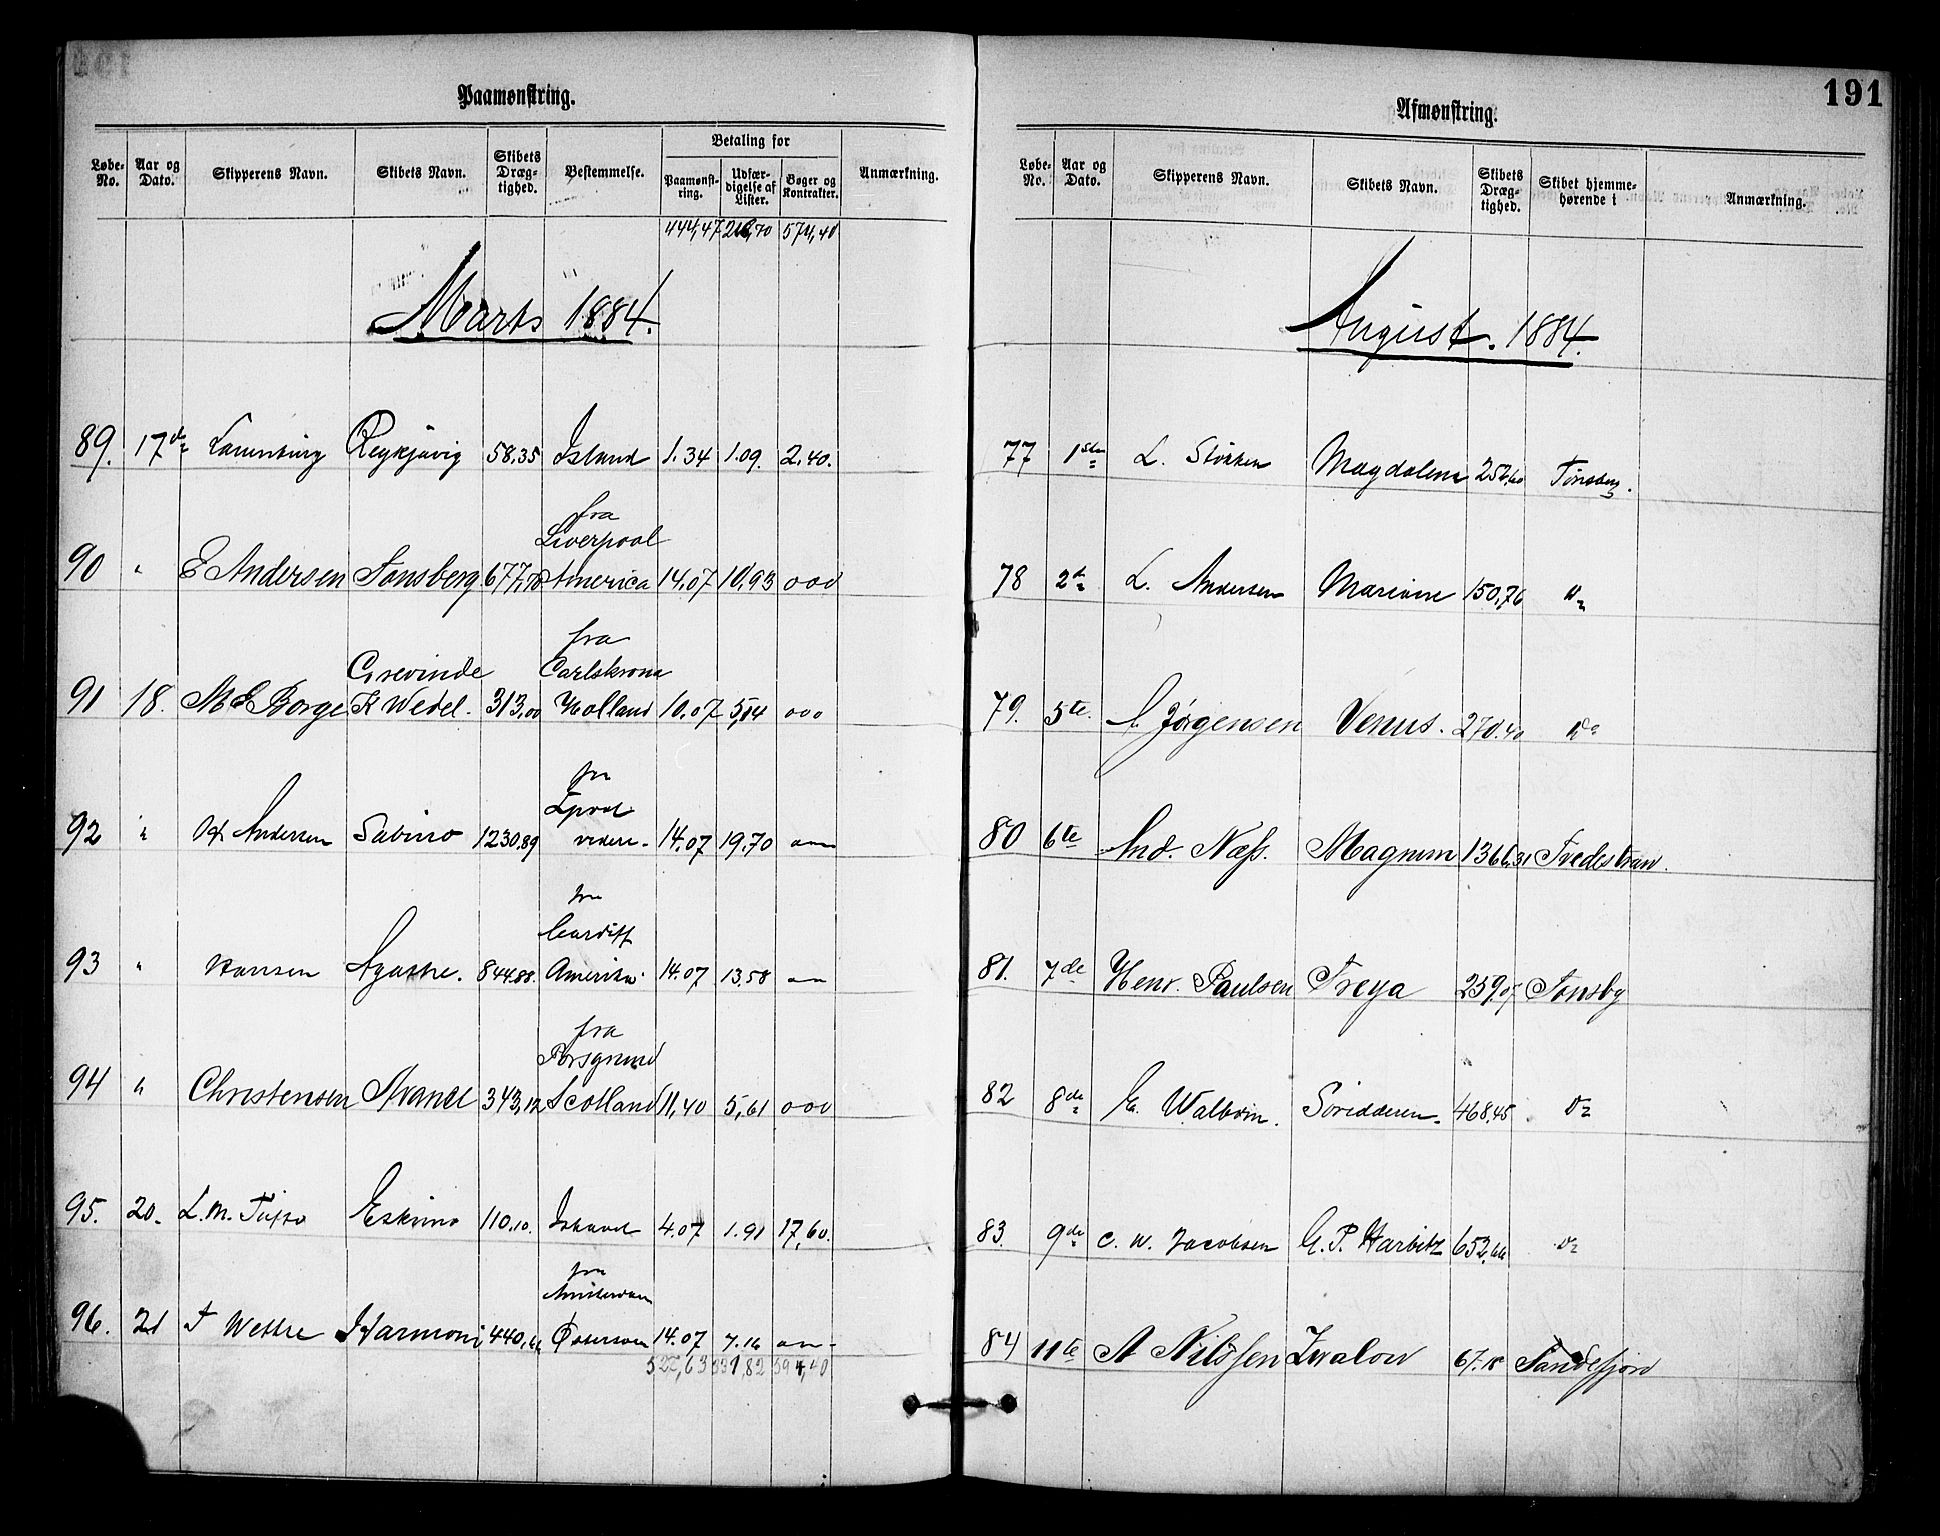 191
Paamønstring.
Løbe-No. Aar og Dato. Skipperens Navn. Skibets Navn. Skibets Dræg-tighed. Bestemmelse. Betaling for Paamønst-ring. Udfær-digelse af Lister. Bøger og Kontrakter. Anmærkning.
444,47 218,70 574,40
Marts 1884.
89. 17de Reykjavig 58,35 Island 1.34 1.09. 2.40.
fra
Liverpool
90 " E Andersen Tønsberg 677,70 America 14.07 10,93 ooo
fra
Grevinde Carlskrona
91 18. M E Borge K Wedel. 313,00 Holland 10.07 5,04 ooo
fra
Lpool
92 " Andersen Sabino 1230,89 videre. 14.07 19,70
fra
Cardiff
93 " Hansen Agathe. 844.88. Amerika 14.07 13,58
fra
Porsgrund
94 " Christensen Avance 343,12 Scotland 11,40 5,61 ooo
95. 20. L. M. Eskimo 110.10. Ishavet 4.07 1.91 17,60.
fra
Amsterdam
96. 21 F Wettre Harmoni 440, Østersøen 14.07 7.16
522,63 331,82 594,40
Afmønstring.
Løbe-No. Aar og Dato. Skipperens Navn. Skibets Navn. Skibets Dræg-tighed. Skibet hjemme-hørende i Anmærkning.
August. 1884.
77 1ste L. Støkken Magdalena 252,60 Tønsberg.
78 2de L. Andersen Marione 150,76 Do
79. 5te. A Jørgensen Venus. 270.40 Do
80 6te And. Næss. Magnum 1366,31 Tvedestran.
81. 7de Henr. Paulsen Freya 259,07 Tønsbg
82 8de E. Walbom. Søridderen. 468,45 Do
83. 9de C. W. Jacobsen G. P. Harbitz 652,66 Do
84 11te A Nilssen Zwalow 67.15 Sandefjord